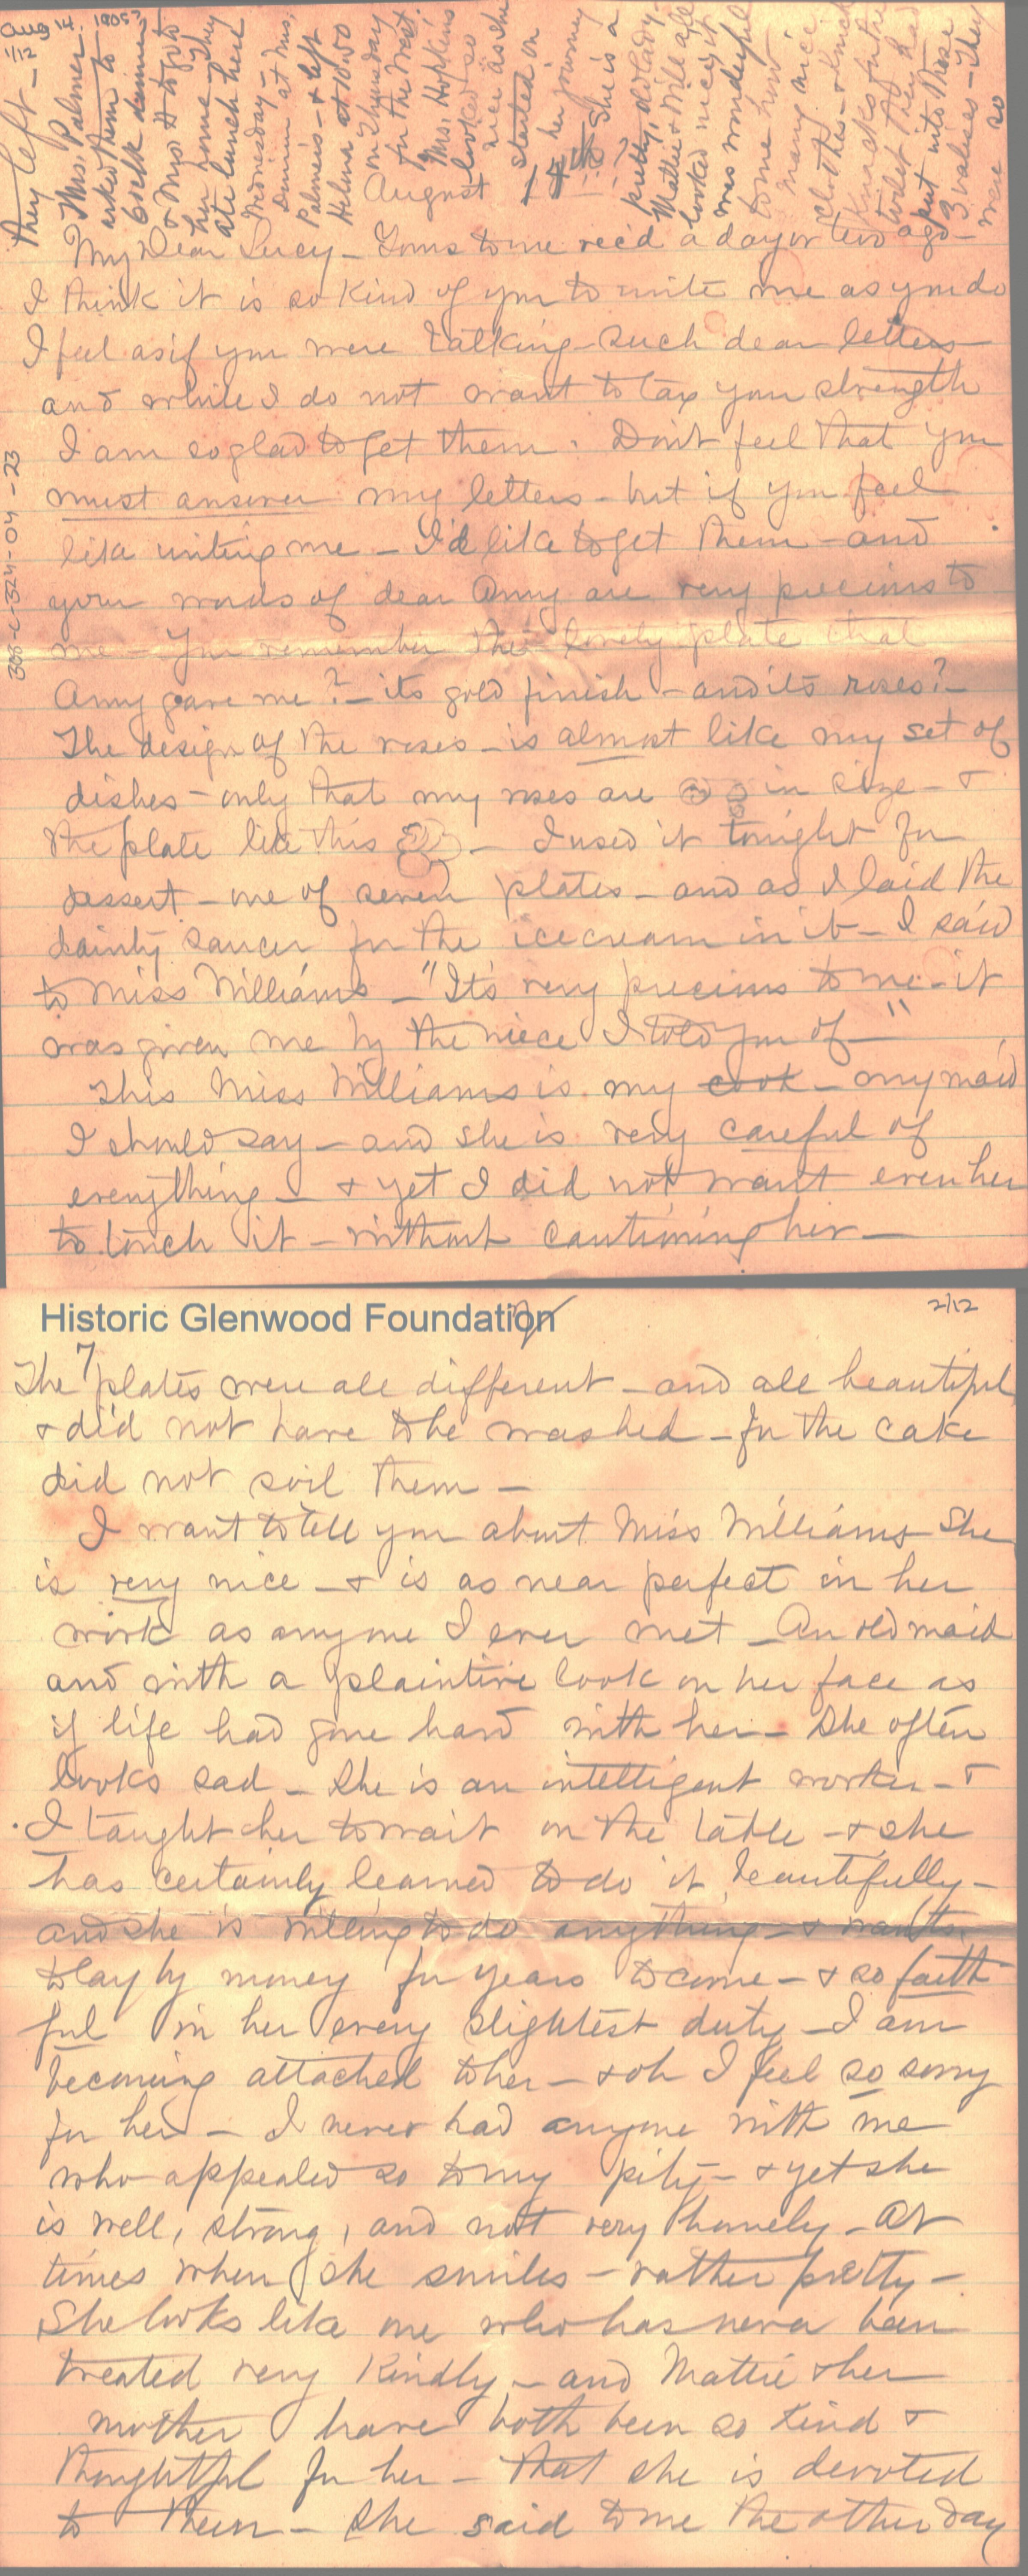 Aug 14, 1905?
1/12
They left –
Mrs. Palmer
asked them to
6 o'clk dinner
& Mrs H to go to
her home – They
ate lunch here
Wednesday –
Dinner at Mrs.
Palmers – & left
Helena at 10.50
on Thursday
for the West.
Mrs. Hopkins
looked so
nice as she
started on
her journey
She is a
pretty, old lady –
Mattie & Mile all
looked nice, it
was wonderful
to me how
many nice
clothes – & knick
knacks for the
toilet they had
put into those
3 valises – They
were so
August 14th
My Dear Lucy – Yours to me rec'd a day or two ago –
I think it is so kind of you to write me as you do
I feel as if you were talking – such dear letters –
and while I do not want to tax your strength
I am so glad to get them. Don't feel that you
must answer my letters – but if you feel
like writing me – I'd like to get them – and
your words of dear Amy are very precious to
me – You remember the lovely plate that
Amy gave me? – its gold finish – and its roses? –
The design of the roses – is almost like my set of
dishes – only that my roses are in size – &
the plate like this – I used it tonight for
dessert – one of seven plates – and as I laid the
dainty saucer for the icecream in it – I said
to Miss Williams – "It's very precious to me – it
was given me by the niece I told you of – "
This Miss Williams is my cook – or my maid
I should say – and she is very careful of
everything – & yet I did not want even her
to touch it – without cautioning her –
308-C-324-04-23
Historic Glenwood Foundation
2/12
The 7 plates were all different – and all beautiful
& did not have to be washed – for the cake
did not soil them –
I want to tell you about Miss Williams She
is very nice – & is as near perfect in her
work as anyone I ever met – An old maid
and with a plaintive look on her face as
if life had gone hard with her – She often
looks sad – She is an intelligent worker – &
I taught her to wait on the table – & she
has certainly learned to do it beautifully –
and she is willing to do anything – & wants
to lay by money for years to come – & so faith
ful in her every slightest duty – I am
becoming attached to her – & oh I feel so sorry
for her – I never had anyone with me
who appealed so to my pity – & yet she
is well, strong, and not very homely – At
times when she smiles – rather pretty –
She looks like one who has never been
treated very kindly – and Mattie & her
mother have both been so kind &
thoughtful for her – that she is devoted
to them – She said to me the other day